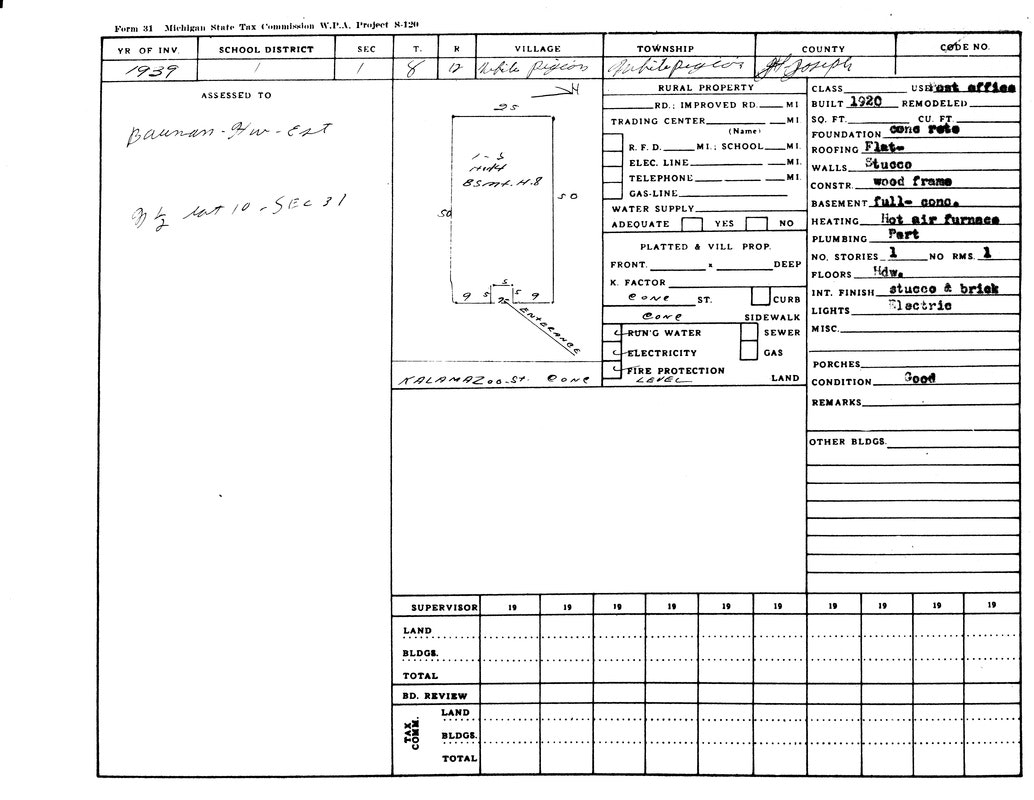 Form 31 Michigan State Tax Commission W.P.A. Project S-120
YR OF INV. SCHOOL DISTRICT SEC T. R VILLAGE TOWNSHIP COUNTY CODE NO.
1939 1 1 8 12 White Pigeon White Pigeon St Joseph
ASSESSED TO
Bauman-Hw-Est
N ½ Lot 10 - SEC 31
N
25
1-S
BSmt. H.8
50 50
5
9 5 5 9
ENTERANCE
KALAMAZoo-St. Conc
RURAL PROPERTY
RD.; IMPROVED RD. MI
TRADING CENTER MI.
(Name)
R. F. D. MI.; SCHOOL MI.
ELEC. LINE MI.
TELEPHONE MI.
GAS-LINE
WATER SUPPLY
ADEQUATE YES NO
PLATTED & VILL PROP.
FRONT. x DEEP
K. FACTOR
Conc ST. CURB
Conc SIDEWALK
RUN'G WATER SEWER
ELECTRICITY GAS
FIRE PROTECTION
LEVEL LAND
CLASS USE Post office
BUILT 1920 REMODELED
SQ. FT. CU. FT.
FOUNDATION conc rete
ROOFING Flat-
WALLS Stucco
CONSTR. wood frame
BASEMENT full- conc.
HEATING Hot air furnace
PLUMBING Part
NO. STORIES 1 NO RMS. 1
FLOORS Hdw.
INT. FINISH stucco & brick
LIGHTS Electric
MISC.
PORCHES
CONDITION Good
REMARKS
OTHER BLDGS.
SUPERVISOR 19 19 19 19 19 19 19 19 19 19
LAND
BLDGS.
TOTAL
BD. REVIEW
TAX COMM.
LAND
BLDGS.
TOTAL